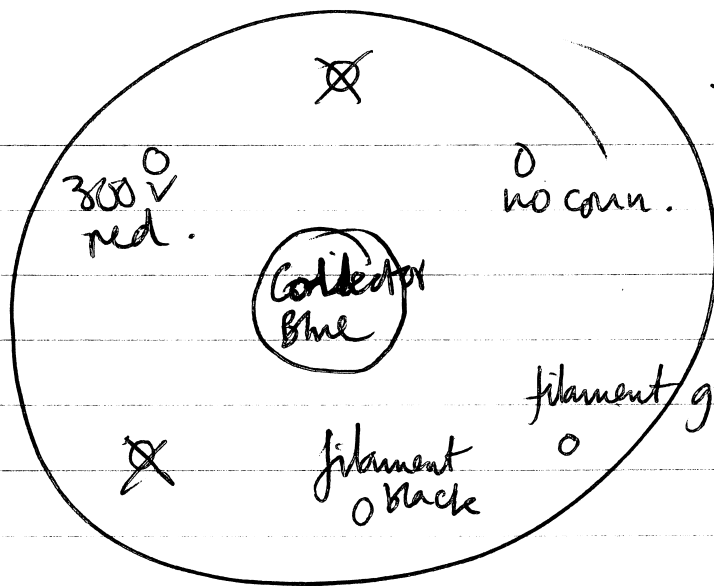 300 V
red.
no conn.
Collector
Blue
filament g
filament
black